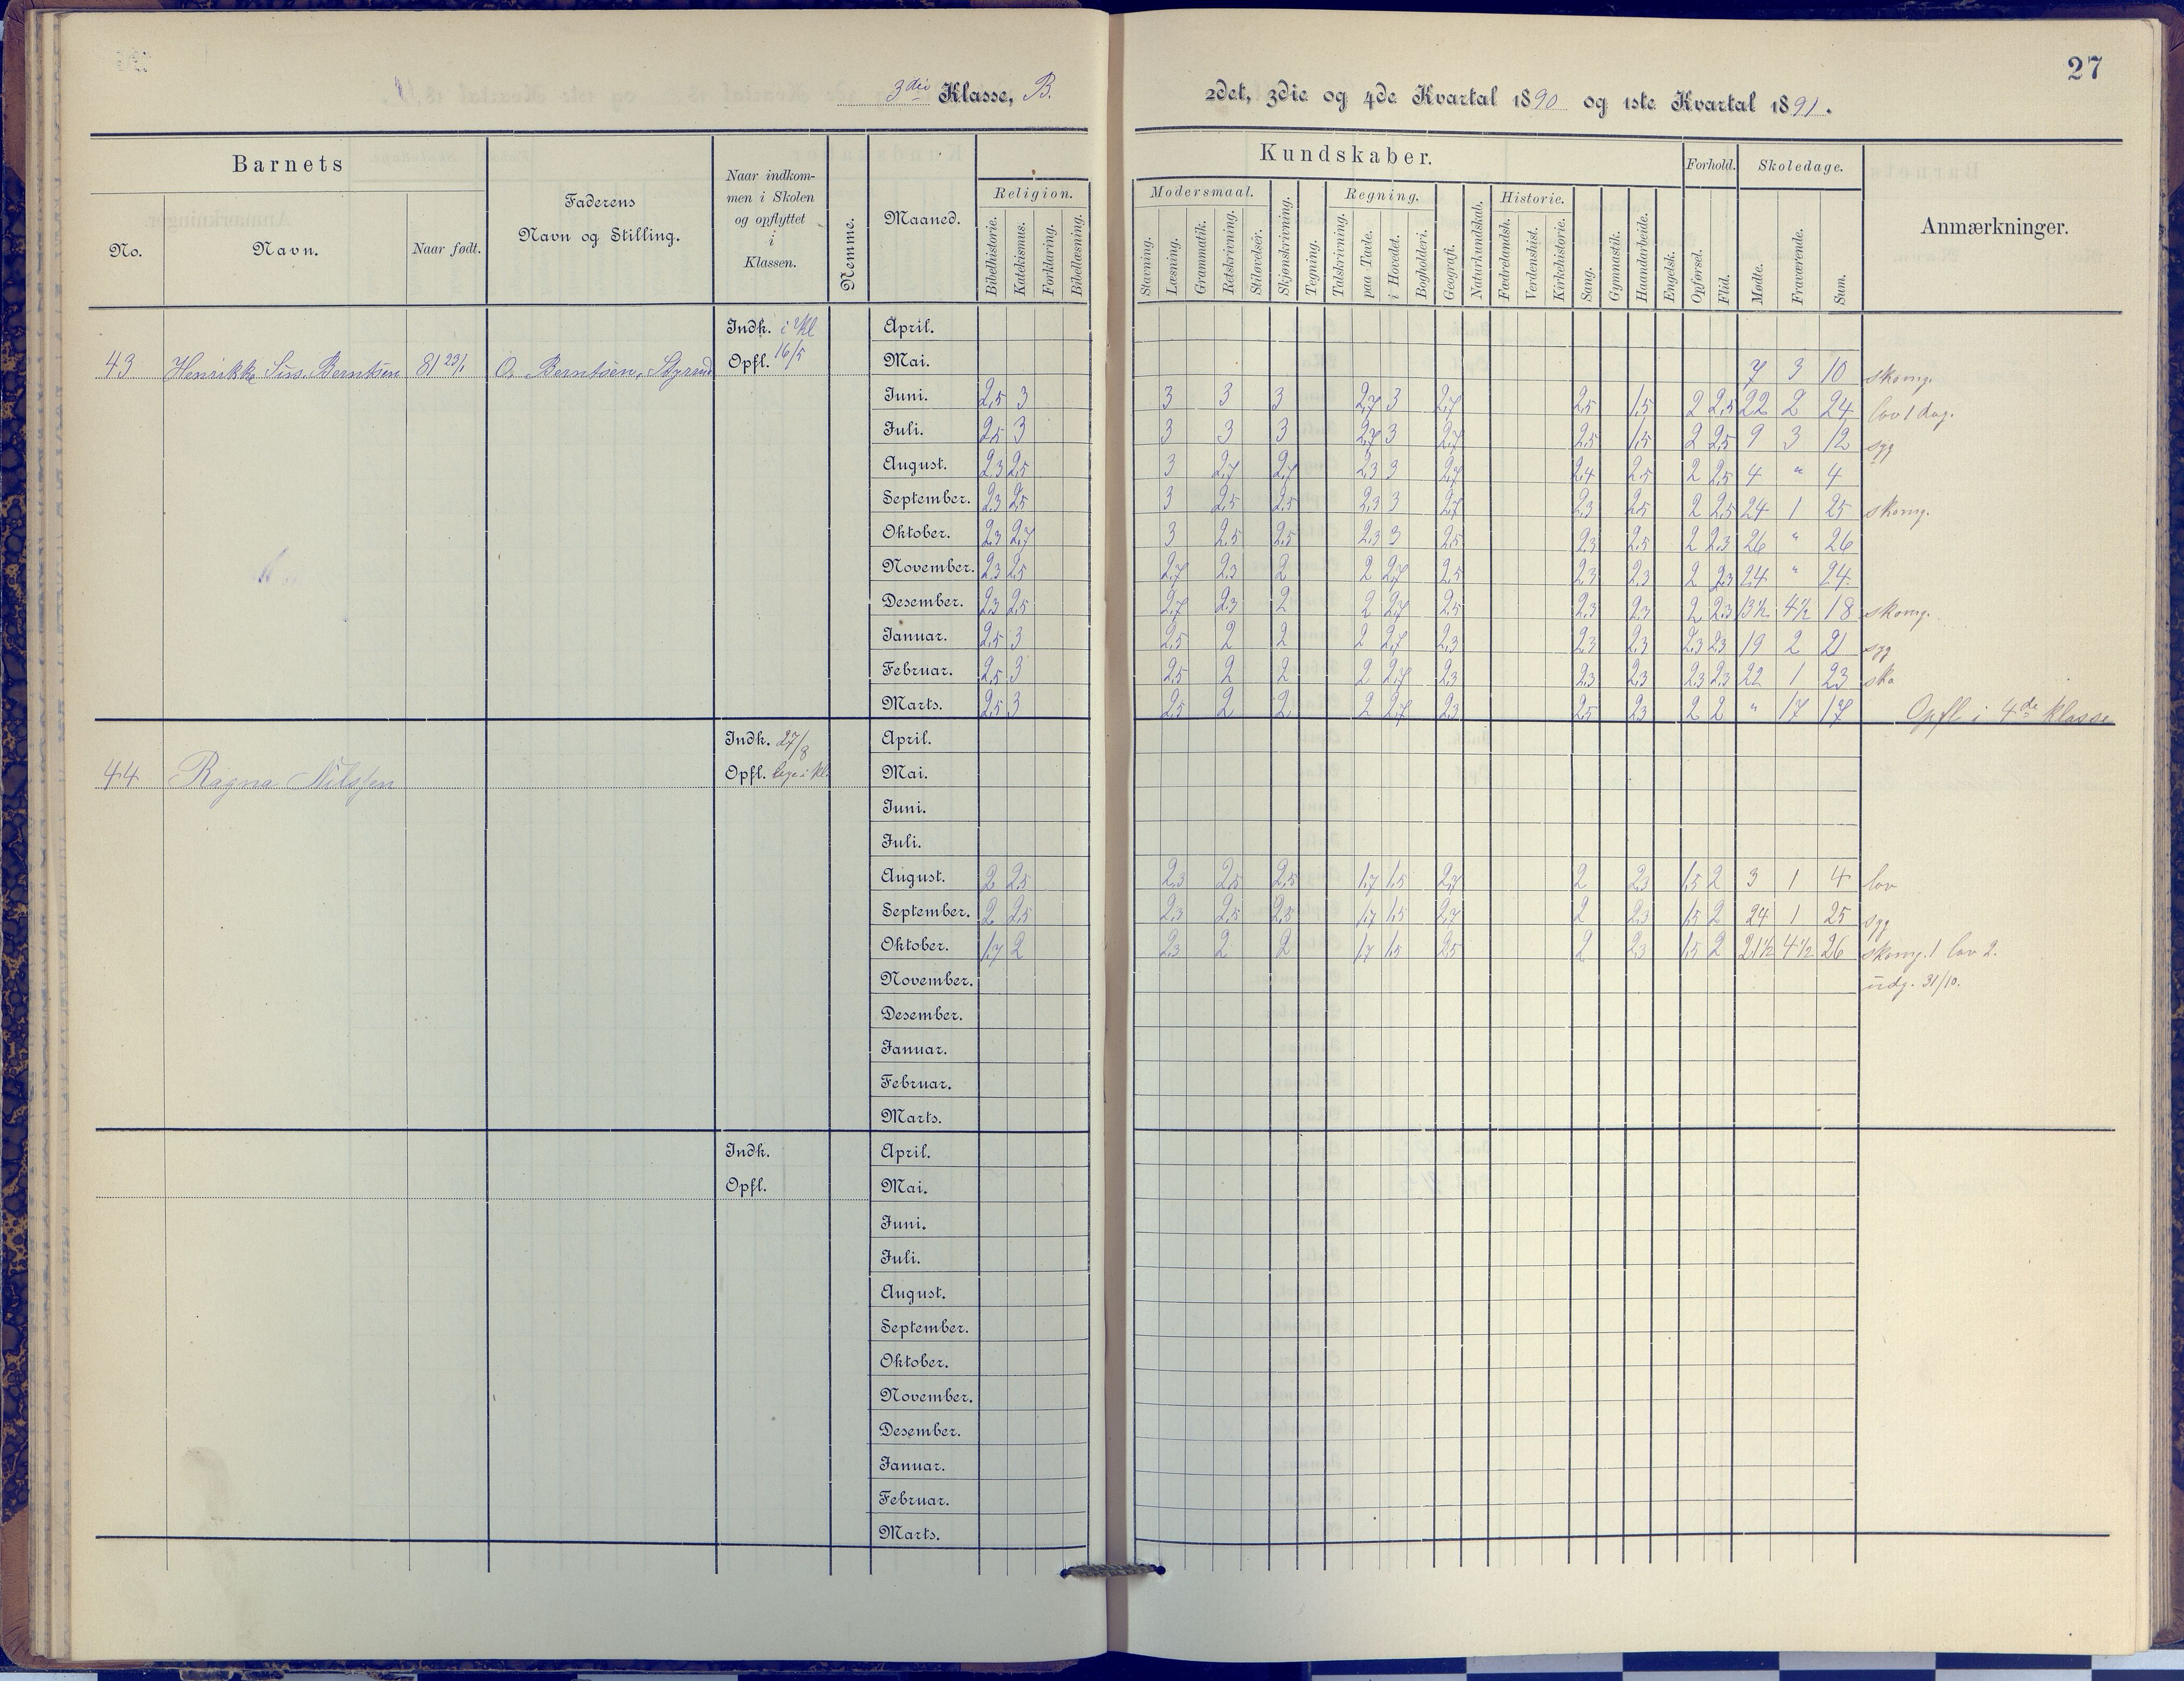 27
3die Klasse, B.
2det, 3die og 4de Kvartal 1890 og 1ste Kvartal 1891.
Barnets
Faderens Navn og Stilling.
Naar indkommen i Skolen og opflyttet i Klassen.
Nemme.
Maaned.
Kundskaber.
Forhold.
Skoledage.
Anmærkninger.
No.
Navn.
Naar født.
Religion.
Bibelhistorie.
Katekismus.
Forklaring.
Bibellæsning.
Modersmaal.
Stavning.
Læsning.
Grammatik.
Retskrivning.
Stiløvelser.
Skjønskrivning.
Tegning.
Regning.
Talskrivning.
paa Tavle.
i Hovedet.
Bogholderi.
Geografi.
Naturkundskab.
Historie.
Fædrelandsh.
Verdenshist.
Kirkehistorie.
Sang.
Gymnastik.
Haandarbeide.
Engelsk.
Opførsel.
Flid.
Møde.
Fraværende.
Sum.
Indk. i Kl April.
43 Henrikke Berntsen 81 23/1 O. Berntsen, Opfl. 16/5 Mai. 7 3 10 skomg.
Juni. 2,5 3 3 3 3 2,7 3 2,7 2,5 1,5 2 2,5 22 2 24 lov 1 dag.
Juli. 2,5 3 3 3 3 2,7 3 2,7 2,5 1,5 2 2,5 9 3 12 syg
August. 2,3 2,5 3 2,7 2,7 2,3 3 2,7 2,4 2,5 2 2,5 4 " 4
September. 2,3 2,5 3 2,5 2,5 2,3 3 2,7 2,3 2,5 2 2,5 24 1 25 skomg.
Oktober. 2,3 2,7 3 2,5 2,5 2,3 3 2,5 2,3 2,5 2 2,3 26 " 26
November. 2,3 2,5 2,7 2,3 2 2 2,7 2,5 2,3 2,3 2 2,3 24 " 24
Desember. 2,3 2,5 2,7 2,3 2 2 2,7 2,5 2,3 2,3 2 2,3 13½ 4½ 18 skomg.
Januar. 2,5 3 2,5 2 2 2 2,7 2,3 2,3 2,3 2,3 2,3 19 2 21 syg
Februar. 2,5 3 2,5 2 2 2 2,7 2,3 2,3 2,3 2,3 2,3 22 1 23 sko
Marts. 2,5 3 2,5 2 2 2 2,7 2,3 2,5 2,3 2 2 " 17 17 Opfl i 4de klasse
Indk. 27/8 April.
44 Ragna Nilssen Opfl. i Kl. Mai.
Juni.
Juli.
August. 2 2,5 2,3 2,5 2,5 1,7 1,5 2,7 2 2,3 1,5 2 3 1 4 lov
September. 2 2,5 2,3 2,5 2,5 1,7 1,5 2,7 2 2,3 1,5 2 24 1 25 syg
Oktober. 1,7 2 2,3 2 2 1,7 1,5 2,5 2 2,3 1,5 2 21½ 4½ 26 skomg. 1 lov 2.
November. udg. 31/10.
Desember.
Januar.
Februar.
Marts.
Indk. April.
Opfl. Mai.
Juni.
Juli.
August.
September.
Oktober.
November.
Desember.
Januar.
Februar.
Marts.